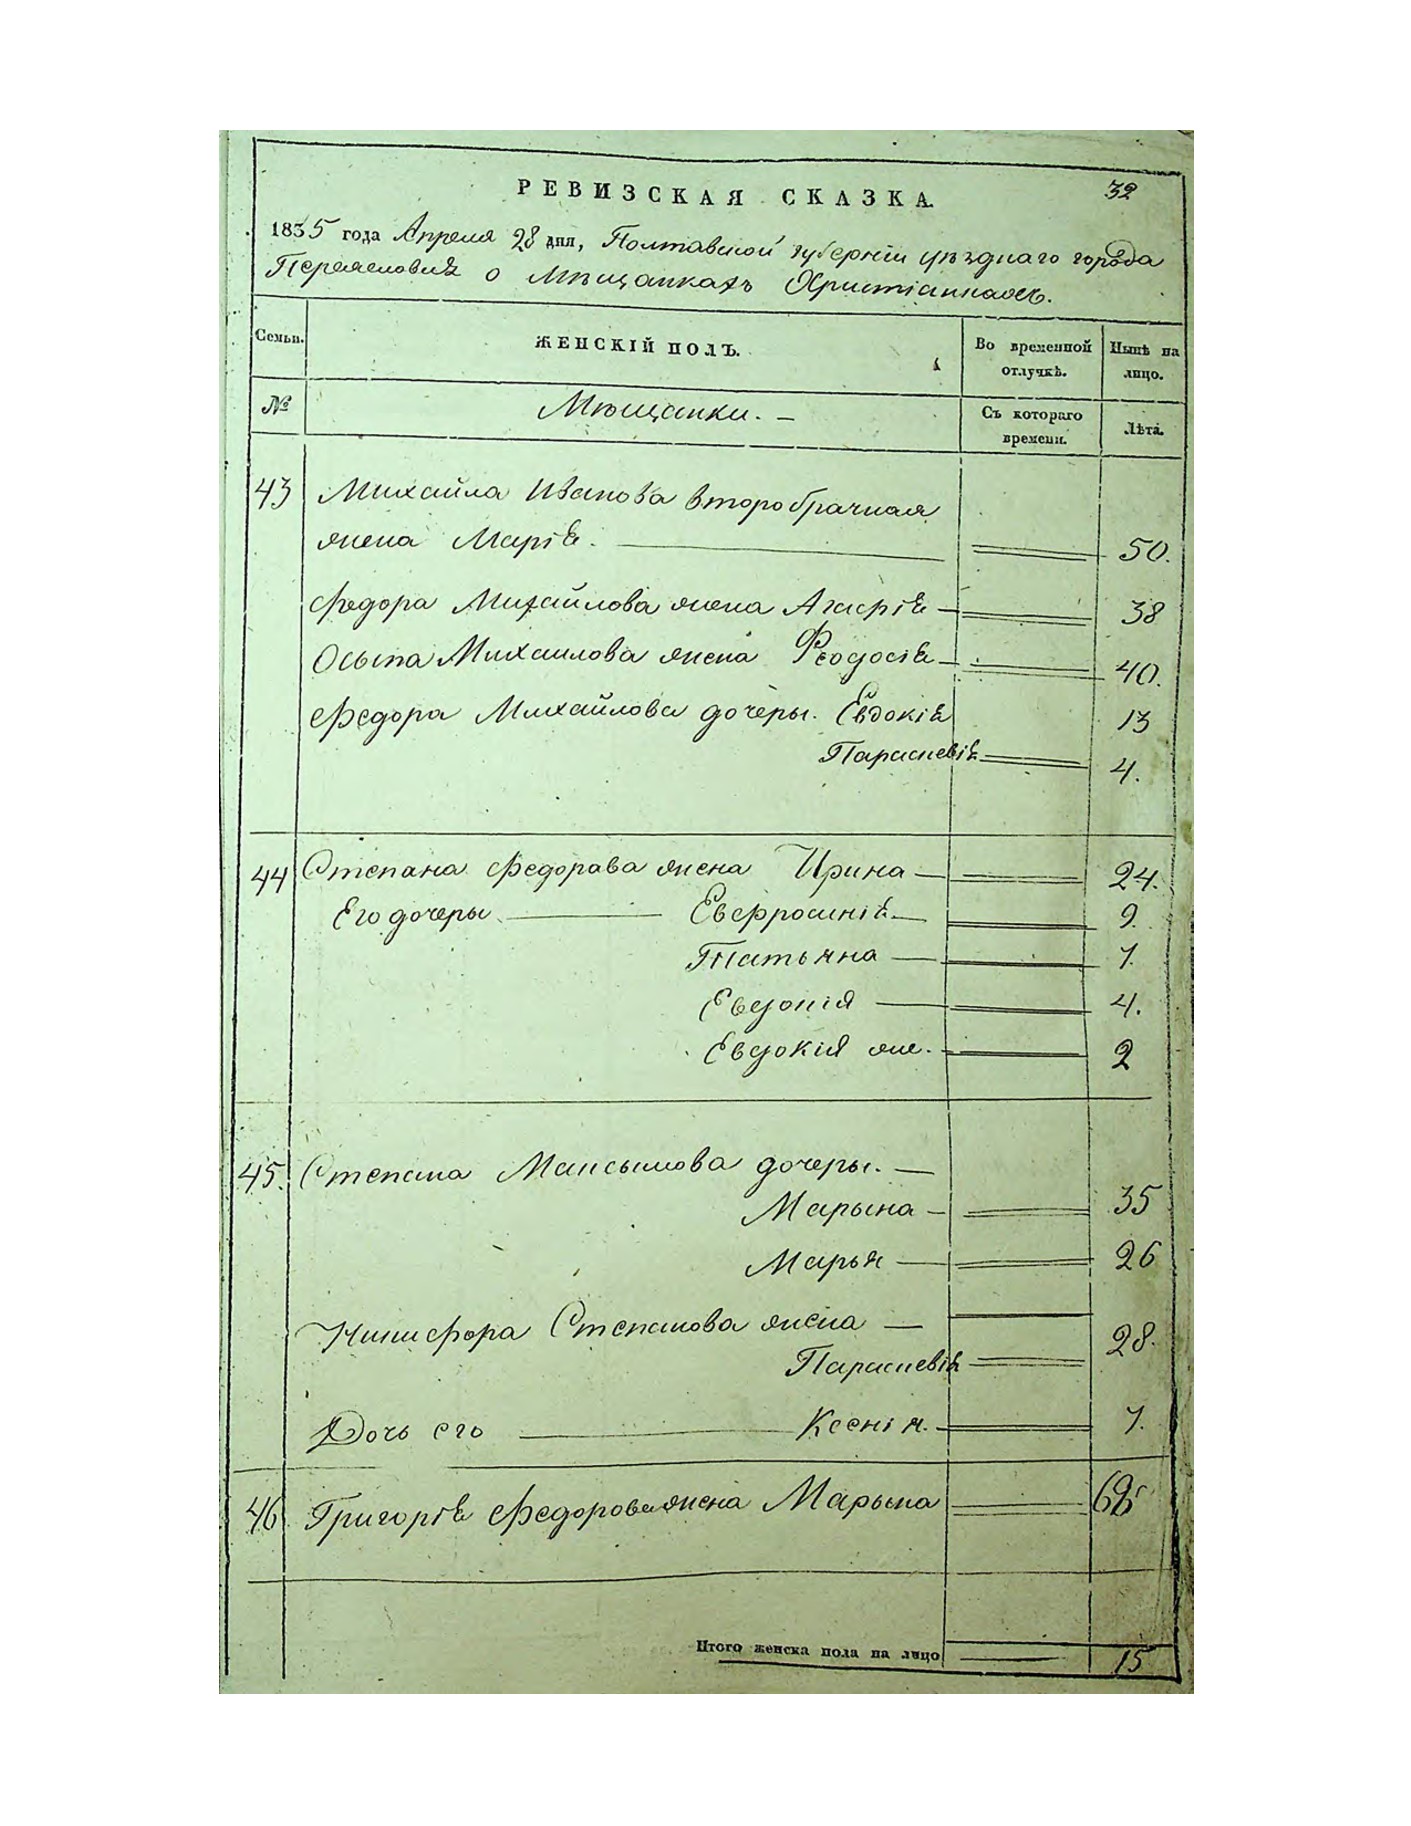 РЕВИЗСКАЯ СКАЗКА.
32
1835 года Апреля 28 дня, Полтавской губернiи уѣзднаго города
Переяславля о Мѣщанкахъ Христiаннахъ.
Семьи.
ЖЕНСКIЙ ПОЛЪ.
Во временной отлучкѣ.
Нынѣ на лицо.
№
Мѣщанки. —
Съ котораго времени.
Лѣта.
43 Михайла Иванова второбрачная
жена Марiя. 50.
Федора Михайлова жена Агафiя — 38
Осыпа Михайлова жена Феодосiя — 40.
Федора Михайлова дочеры. Евдокiя 13
Параскевiя 4.
44 Степана Федорава жена Ирина — 24.
Его дочеры. Евфросинiя — 9.
Татьяна — 7.
Евдокiя — 4.
Евдокiя же. — 2
45. Степана Максымова дочеры. —
Марына — 35
Марья — 26
Никифора Степанова жена —
Параскевiя 28.
Дочь его Ксенiя. — 7.
46 Григорiя Федорова жена Марына
Итого женска пола на лицо 15